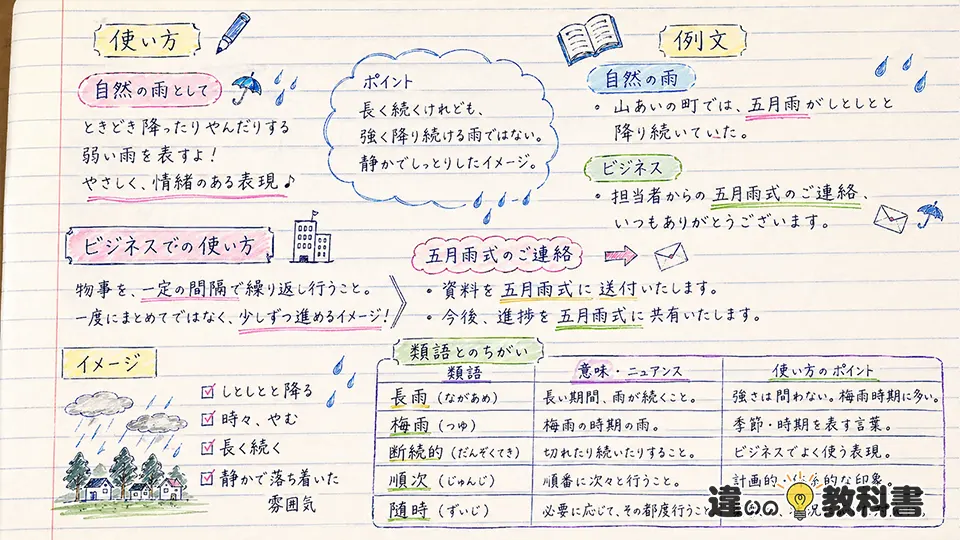 使い方
自然の雨として
ときどき降ったりやんだりする
弱い雨を表すよ!
やさしく、情緒のある表現♪
ポイント
長く続くけれども、
強く降り続ける雨ではない。
静かでしっとりしたイメージ。
例文
自然の雨
・山あいの町では、五月雨がしとしとと
降り続いていた。
ビジネス
・担当者からの五月雨式のご連絡、
いつもありがとうございます。
ビジネスでの使い方
物事を、一定の間隔で繰り返し行うこと。
一度にまとめてではなく、少しずつ進めるイメージ!
五月雨式のご連絡
・資料を五月雨式に送付いたします。
・今後、進捗を五月雨式に共有いたします。
イメージ
しとしとと降る
時々、やむ
長く続く
静かで落ち着いた
雰囲気
類語とのちがい
類語 意味・ニュアンス 使い方のポイント
長雨(ながあめ) 長い期間、雨が続くこと。 強さは問わない。梅雨時期に多い。
梅雨(つゆ) 梅雨の時期の雨。 季節・時期を表す言葉。
断続的(だんぞくてき) 切れたり続いたりすること。 ビジネスでよく使う表現。
順次(じゅんじ) 順番に次々と行うこと。 計画的・的な印象。
随時(ずいじ) 必要に応じて、その都度行うこと
違いの教科書